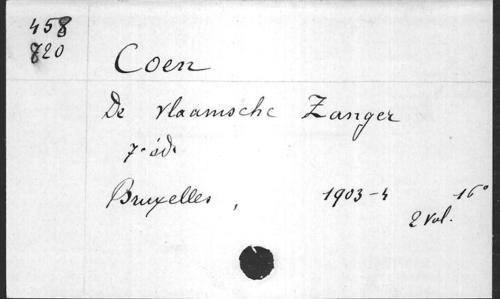 458
820
Coen
De vlaamsche Zanger
7e éd.
Bruxelles, 1903-4 16°
2 vol.